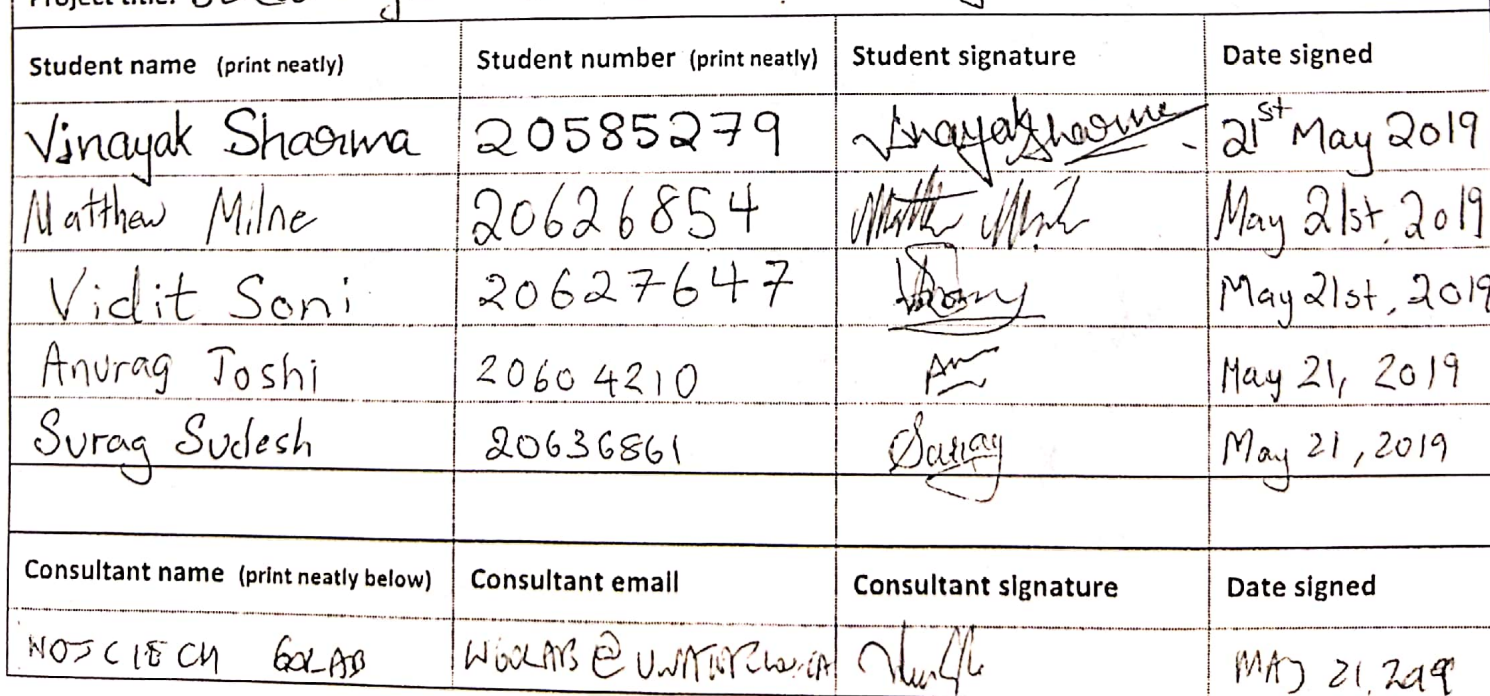 Project title:
Student name (print neatly) Student number (print neatly) Student signature Date signed
Vinayak Sharma 20585279 Vinayak Sharma 21st May 2019
Matthew Milne 20626854 May 21st, 2019
Vidit Soni 20627647 May 21st, 2019
Anurag Joshi 20604210 May 21, 2019
Surag Sudesh 20636861 Surag May 21, 2019
Consultant name (print neatly below) Consultant email Consultant signature Date signed
WOJCIECH GOLAB WGOLAB@UWATERLOO.CA MAY 21, 2019